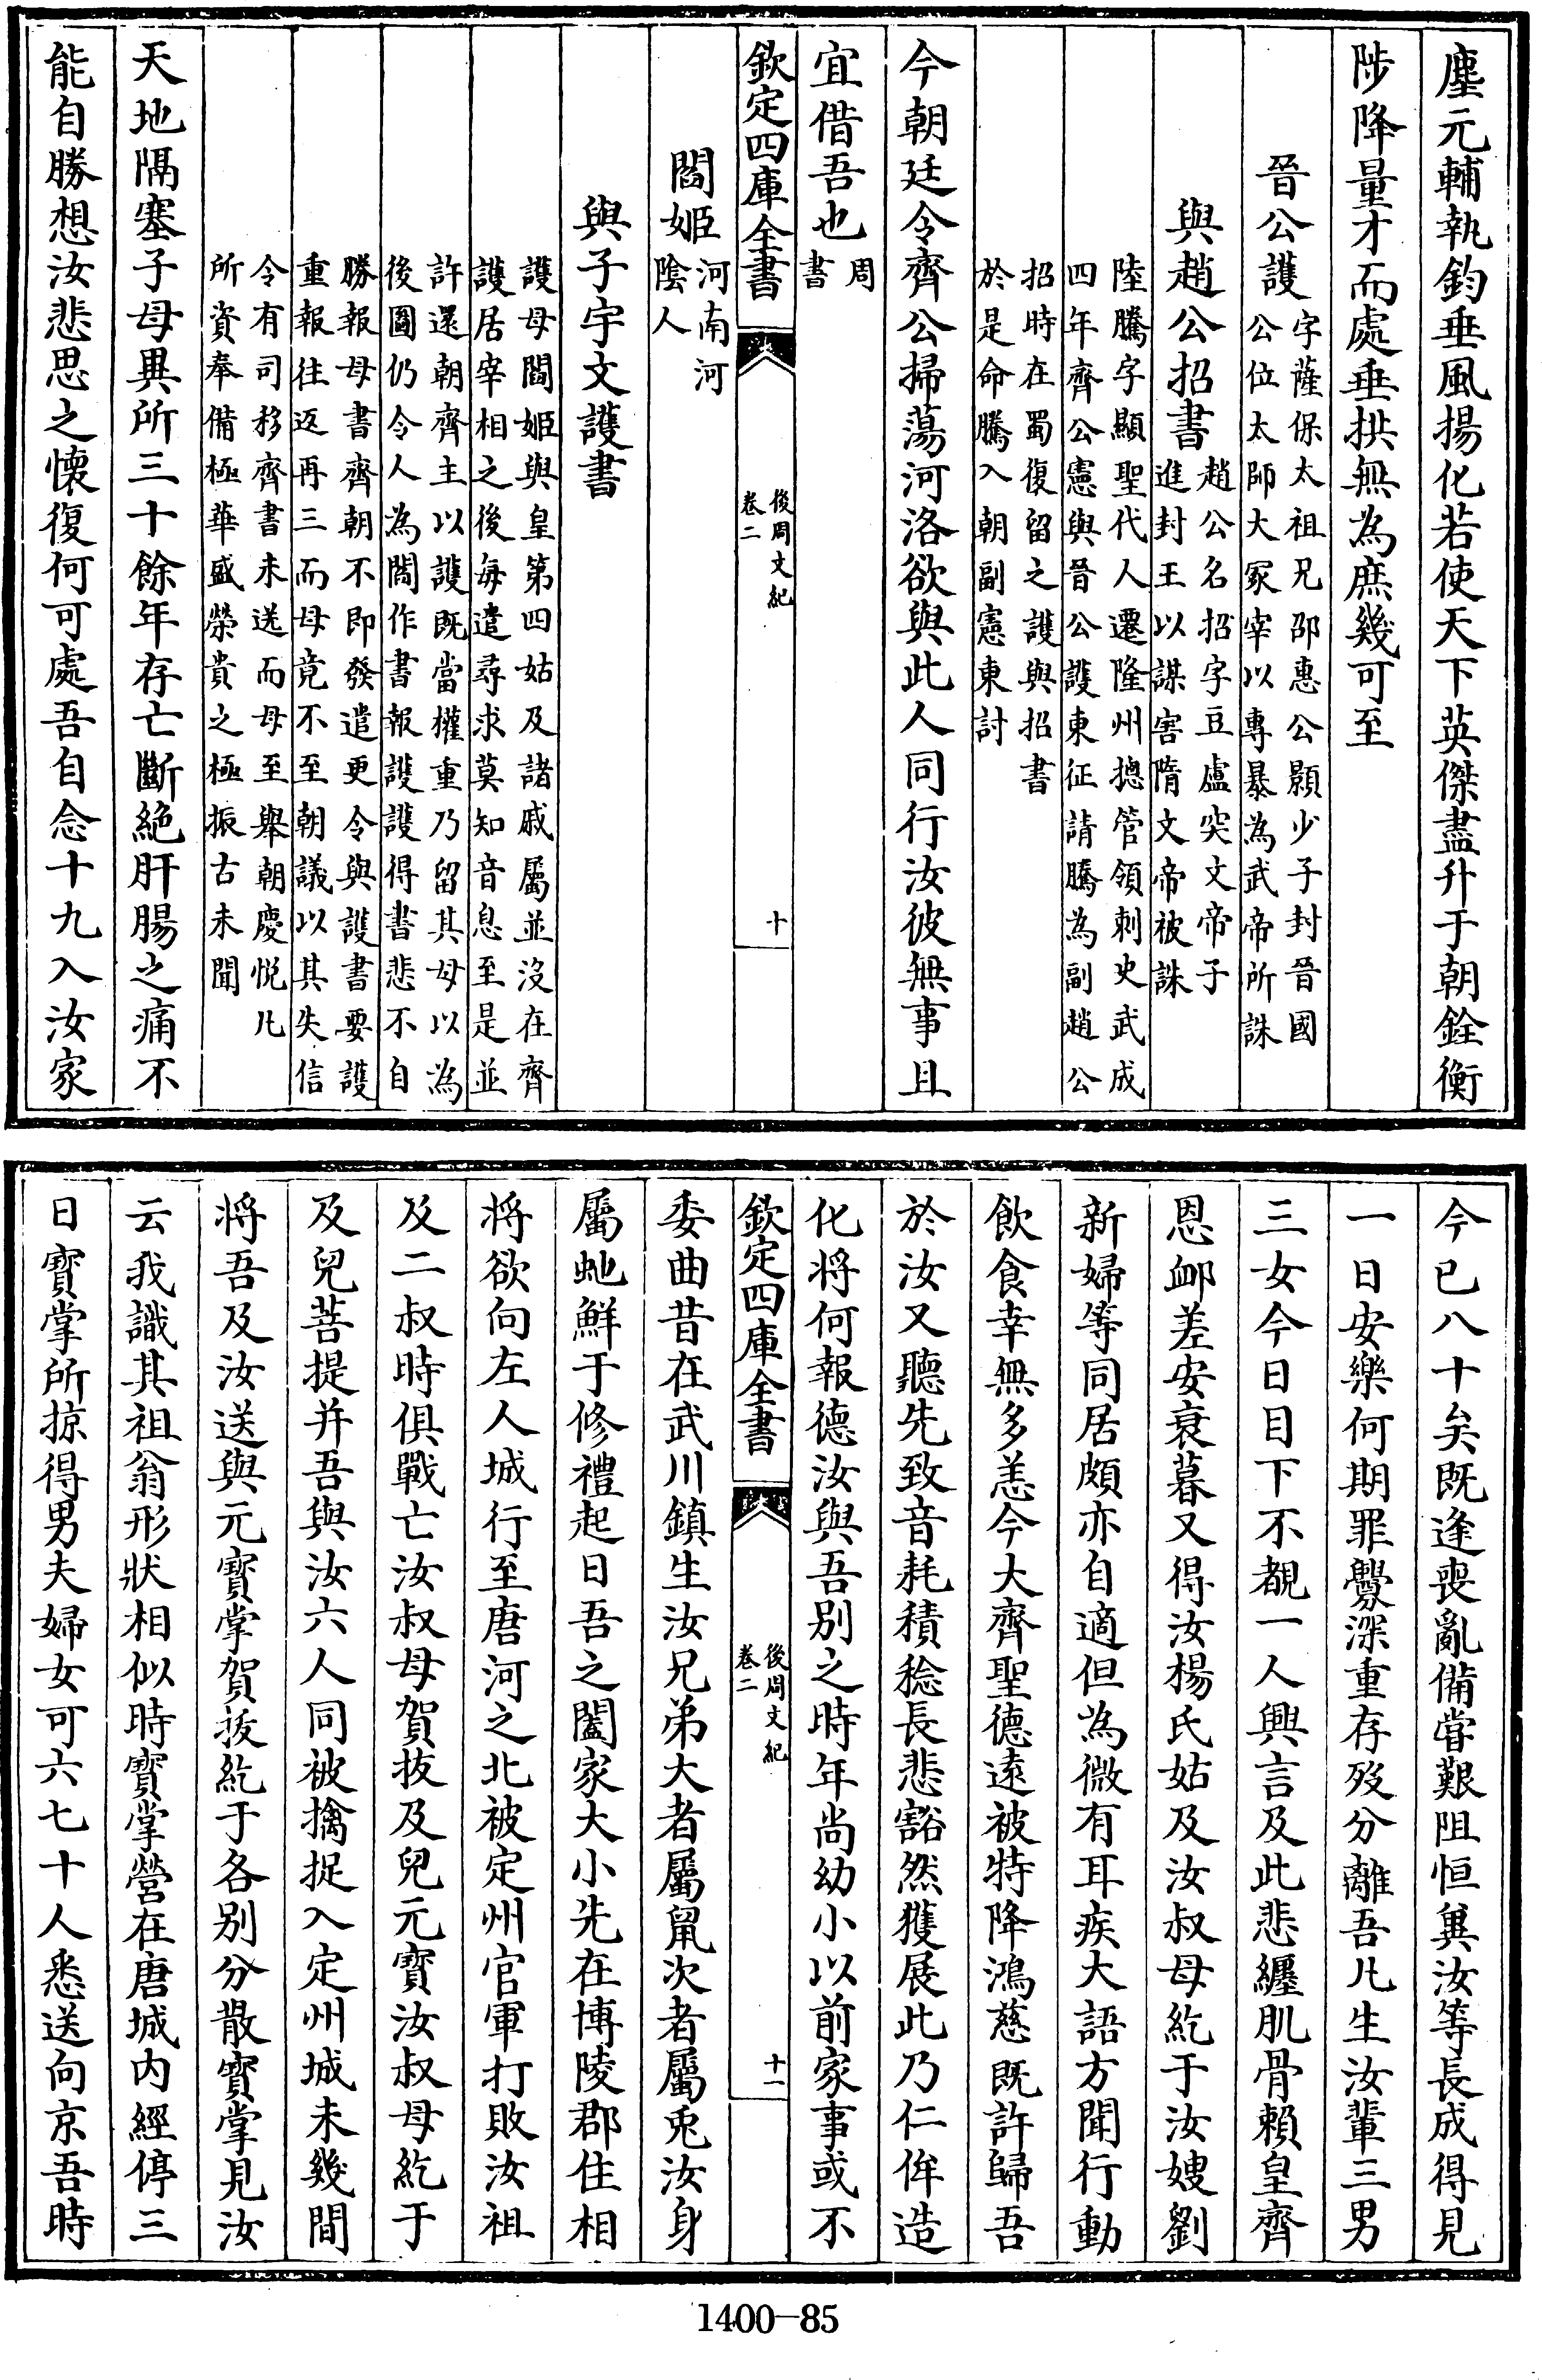 塵元輔執鈞垂風揚化若使天下英傑盡升于朝銓衡
陟降量才而處垂拱無為庶幾可至
晉公護
字薩保太祖兄邵惠公顥少子封晉國
公位太師大冢宰以專暴為武帝所誅
與趙公招書
趙公名招字豆盧突文帝子
進封王以謀害隋文帝被誅
陸騰字顯聖代人遷隆州摠管領刺史武成
四年齊公憲與晉公護東征請騰為副趙公
招時在蜀復留之護與招書
於是命騰入朝副憲東討
今朝廷令齊公掃蕩河洛欲與此人同行汝彼無事且
宜借吾也
周
書
欽定四庫全書
後周文紀
卷二
十
閻姬
河南河
陰人
與子宇文護書
護母閻姬與皇第四姑及諸戚屬並沒在齊
護居宰相之後每遣尋求莫知音息至是並
許還朝齊主以護既當權重乃留其母以為
後圖仍令人為閻作書報護護得書悲不自
勝報母書齊朝不即發遣更令與護書要護
重報往返再三而母竟不至朝議以其失信
令有司移齊書未送而母至舉朝慶悦凡
所資奉備極華盛榮貴之極振古未聞
天地隔塞子母異所三十餘年存亡斷絶肝腸之痛不
能自勝想汝悲思之懷復何可處吾自念十九入汝家
今已八十矣既逢喪亂備甞艱阻恒冀汝等長成得見
一日安樂何期罪釁深重存殁分離吾凡生汝輩三男
三女今日目下不覩一人興言及此悲纒肌骨賴皇齊
恩䘏差安衰暮又得汝楊氏姑及汝叔母紇于汝嫂劉
新婦等同居頗亦自適但為微有耳疾大語方聞行動
飲食幸無多恙今大齊聖德遠被特降鴻慈既許歸吾
於汝又聽先致音耗積稔長悲豁然獲展此乃仁侔造
化將何報德汝與吾别之時年尚幼小以前家事或不
欽定四庫全書
後周文紀
卷二
十一
委曲昔在武川鎮生汝兄弟大者屬鼠次者屬兎汝身
屬虵鮮于修禮起日吾之闔家大小先在博陵郡住相
將欲向左人城行至唐河之北被定州官軍打敗汝祖
及二叔時俱戰亡汝叔母賀拔及兒元寳汝叔母紇于
及兒菩提并吾與汝六人同被擒捉入定州城未幾間
將吾及汝送與元寳掌賀拔紇于各别分散寳掌見汝
云我識其祖翁形狀相似時寳掌營在唐城内經停三
日寳掌所掠得男夫婦女可六七十人悉送向京吾時
1400-85